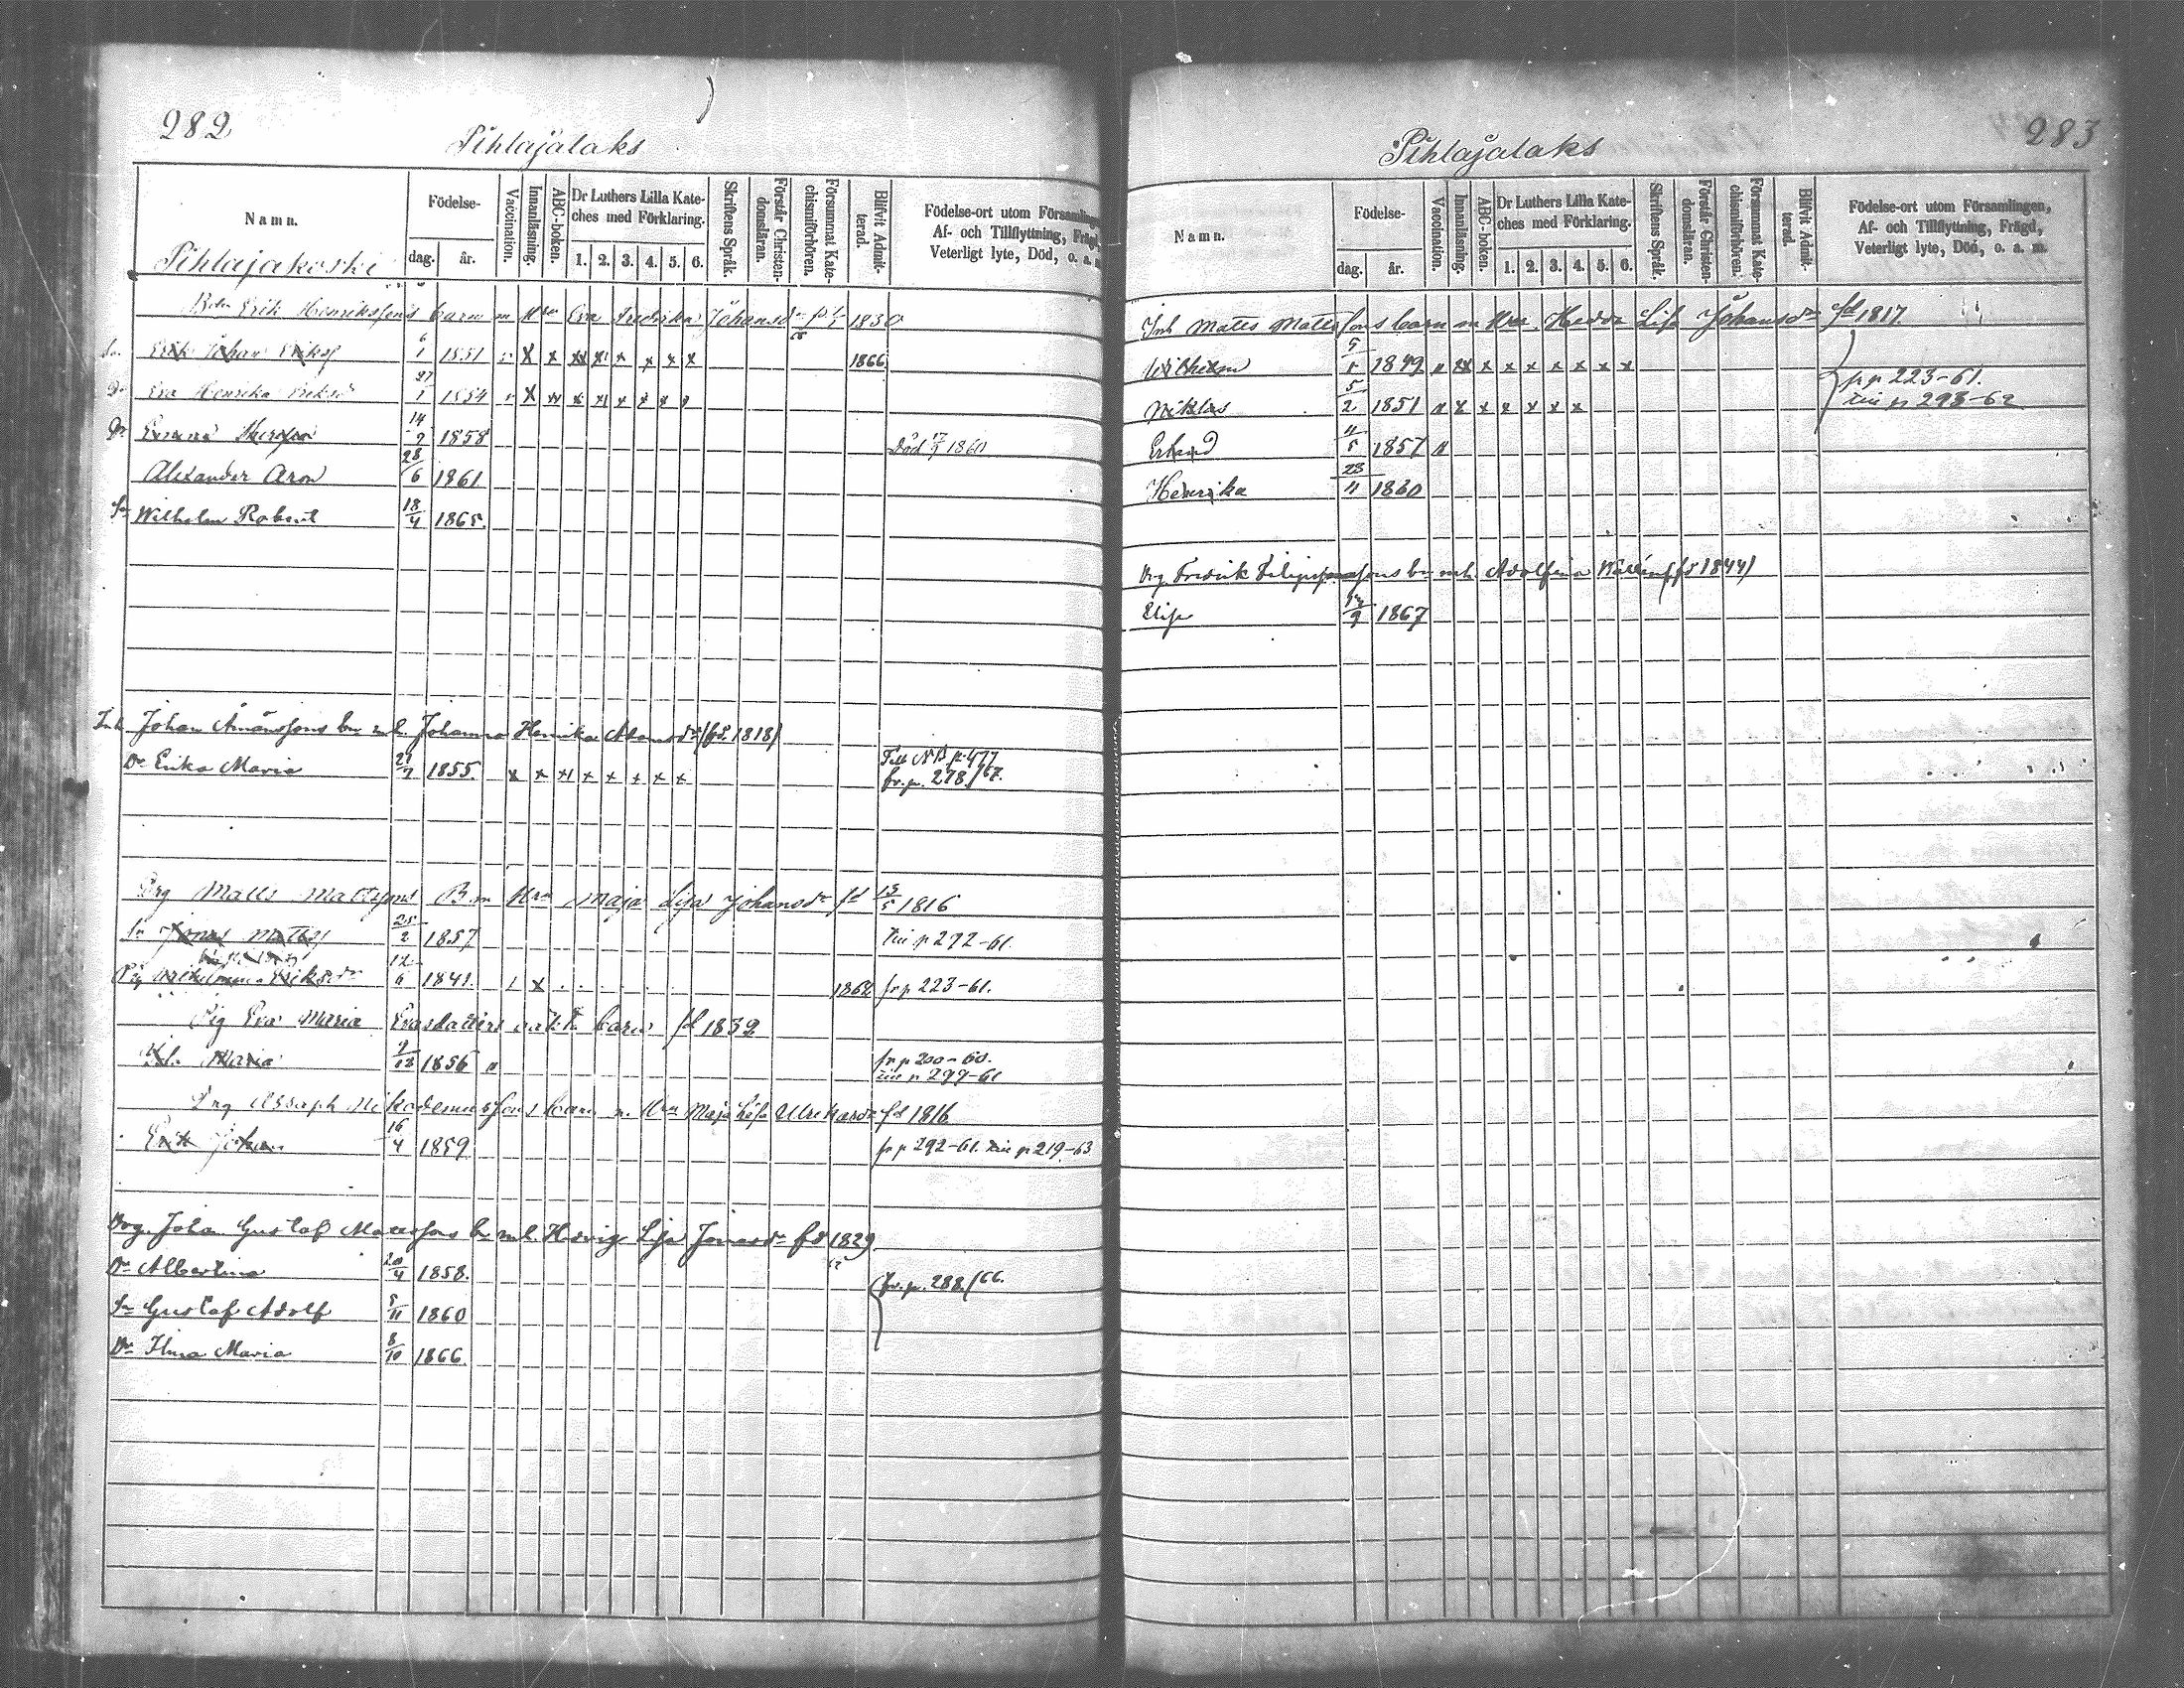 282
Pihlajalaks
Namn.
Födelse-
dag.
år.
Vaccination.
Innanläsning.
ABC-boken.
Dr Luthers Lilla Kate-
ches med Förklaring.
1. 2. 3. 4. 5. 6.
Skriftens Språk.
Förstår Christen-
domsläran.
Försummat Kate-
chismiförhören.
Blifvit Admit-
terad.
Födelse-ort utom Församlingen,
Af- och Tillflyttning, Frägd,
Veterligt lyte, Död, o. a. m.
Pihlajakoski
Erik Henrikssons barn m Hru Eva Fredrika Johansdr 1830
Erik Johan Eriksf 6/1 1851 x x xx x x x x x 1866
Dr Eva Henrika Eriksdr 27/1 1854 x x x x x x x
Dr Emma 14/9 1858 Död 1860
Alexander Aron 28/6 1861
Sn Wilhelm Robert 18/4 1865.
Inh. Johan Amanssons bn m.h. Johanna Henrika Adamsdr (fd. 1818)
Dr Erika Maria 21/7 1855. x x x x x x x x Fell NB p 477
fr. p. 278./67.
Drg Matts Mattssons B m Hru Maja Lisa Johansdr fd 13/5 1816
Sn Jonas Mattsf 25/2 1857 till p 292-61.
Pig Wilhelmina Eriksdr 12/6 1841. x 1862 fr p 223-61.
Pig Eva Maria Evasdotters oäkta barn fd 1832
Maria 9/12 1856 " fr p 200-60.
till p 299-61
Drg Assaph Nikodemussons barn m. Hru Maja Lisa Ulriksdr fd 1816
Erik Johan 16/4 1859 fr p 292-61. till p 219-63
Drg. Johan Gustaf Matssons bn m.h. Hedvig Lisa Jonasdr fd 1829
Dr Albertina 20/4 1858. fr. p. 288./66.
Sn Gustaf Adolf 5/11 1860
Dr Ilma Maria 8/10 1866
283
Pihlajalaks
Namn.
Födelse-
dag.
år.
Vaccination.
Innanläsning.
ABC-boken.
Dr Luthers Lilla Kate-
ches med Förklaring.
1. 2. 3. 4. 5. 6.
Skriftens Språk.
Förstår Christen-
domsläran.
Försummat Kate-
chismiförhören.
Blifvit Admit-
terad.
Födelse-ort utom Församlingen,
Af- och Tillflyttning, Frägd,
Veterligt lyte, Död, o. a. m.
Inh Matts Mattssons barn m Hru. Hedda Lisa Johansdr fd 1817.
Wilhelm 9/1 1849 " xx x x x x x x x
fr p 223-61.
Niklas 5/2 1851 " x x x x x x till p 293-62
Erland 11/5 1857 "
Henrika 23/11 1860
Drg. Fredrik Filipssons bn m.h. Adolfina (fd 1844)
Elise 1867